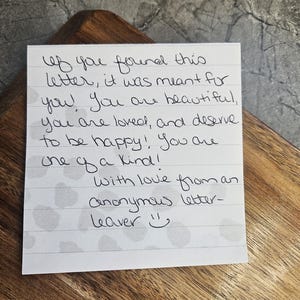 If you found this
letter, it was meant for
you! You are beautiful,
you are loved, and deserve
to be happy! You are
one of a kind!
With love from an
anonymous letter-
leaver :)